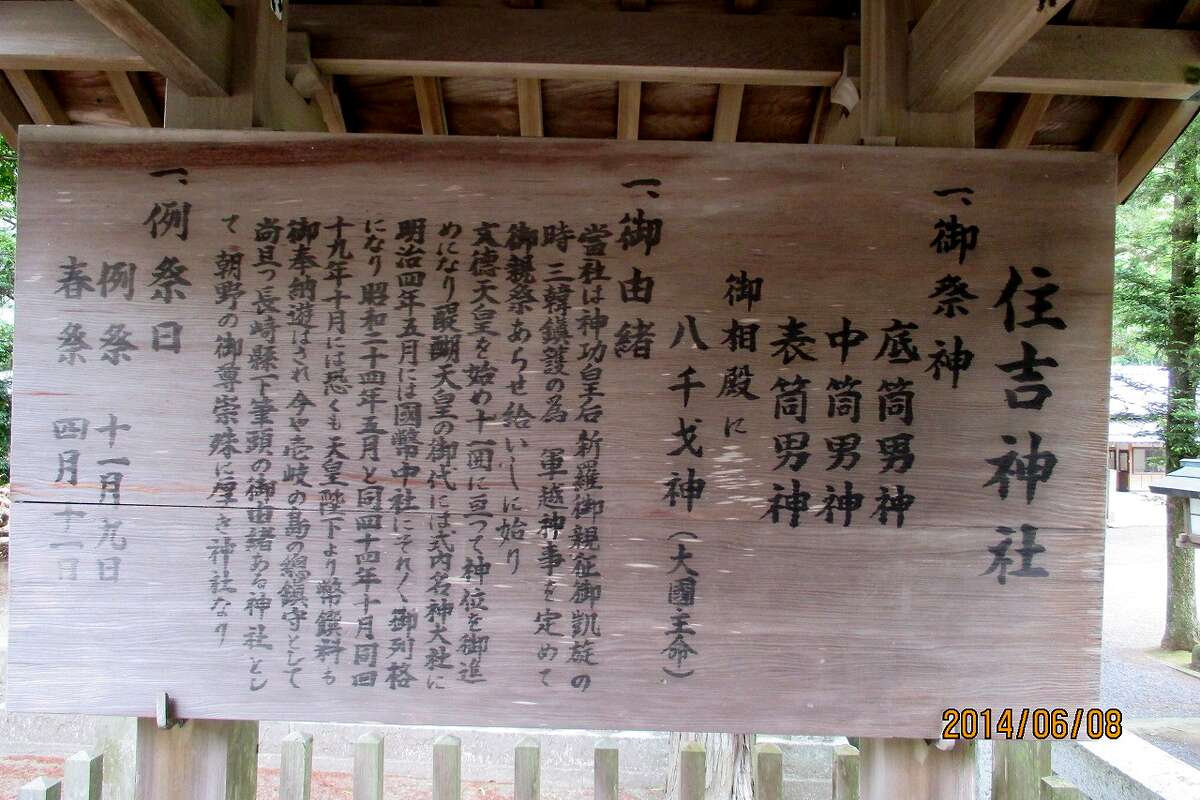 住吉神社
一、御祭神
底筒男神
中筒男神
表筒男神
御相殿に
八千戈神（大國主命）
一、御由緒
當社は神功皇后新羅御親征御凱旋の
時三韓鎮護の為 軍越神事を定めて
御親祭あらせ給いしに始り
文德天皇を始め十一囬に亘って神位を御進
めになり醍醐天皇の御代には式内名神大社に
明治四年五月には國幣中社にそれ〲御列格
になり昭和二十四年五月と同四十年十月同四
十九年十月には恐くも天皇陛下より幣饌料を
御奉納遊ばされ今や壱岐の島の總鎮守として
尚且つ長崎縣下筆頭の御由緒ある神社とし
て 朝野の御尊崇殊に厚き神社なり
一、例祭日
例祭 十一月九日
春祭 四月十一日
2014/06/08